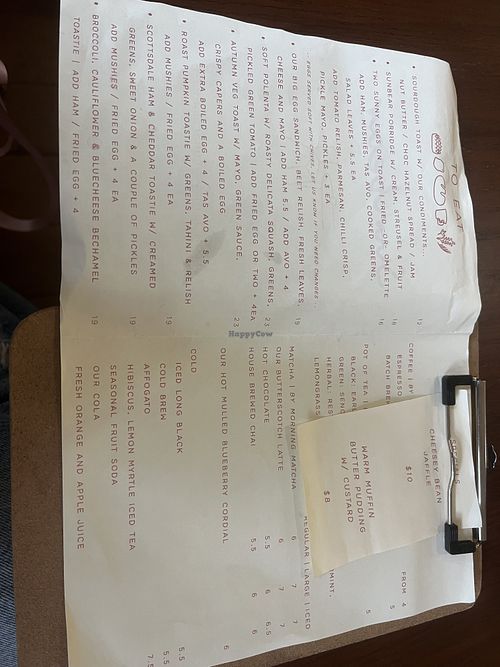 TO EAT
• SOURDOUGH TOAST W/ OUR CONDIMENTS,
NUT BUTTER / CHOC HAZELNUT SPREAD / JAM 12
• SUNBEAR PORRIDGE W/ CREAM, STREUSEL & FRUIT 18
• TWO SUNNY EGGS ON TOAST | FRIED -OR- OMELETTE 16
ADD HAM, MUSHIES, TAS AVO, COOKED GREENS,
SALAD LEAVES + 5.5 EA
ADD TOMATO RELISH, PARMESAN, CHILLI CRISP,
PICKLE MAYO, PICKLES + 3 EA
EGGS SERVED SOFT WITH CHIVES, LET US KNOW IF YOU NEED CHANGES
• OUR BIG EGG SANDWICH, BEET RELISH, FRESH LEAVES,
CHEESE AND MAYO | ADD HAM 5.5 / ADD AVO + 4 19
• SOFT POLENTA W/ ROASTY DELICATA SQUASH, GREENS,
PICKLED GREEN TOMATO | ADD FRIED EGG OR TWO + 4EA 23
• AUTUMN VEG TOAST W/ MAYO, GREEN SAUCE,
CRISPY CAPERS AND A BOILED EGG 23
ADD EXTRA BOILED EGG + 4 / TAS AVO + 5.5
• ROAST PUMPKIN TOASTIE W/ GREENS, TAHINI & RELISH
ADD MUSHIES / FRIED EGG + 4 EA 19
• SCOTTSDALE HAM & CHEDDAR TOASTIE W/ CREAMED
GREENS, SWEET ONION & A COUPLE OF PICKLES
ADD MUSHIES / FRIED EGG + 4 EA 19
• BROCCOLI, CAULIFLOWER & BLUECHEESE BECHAMEL
TOASTIE | ADD HAM / FRIED EGG + 4 19
CHEESEY BEAN
JAFFLE
$10
WARM MUFFIN
BUTTER PUDDING
W/ CUSTARD
$8
COFFEE | BY
ESPRESSO FROM 4
BATCH BREW 5
POT OF TEA 5
BLACK:
GREEN:
HERBAL:
LEMONGRASS
REGULAR | LARGE | ICED
MATCHA | BY MORNING MATCHA 6 7 7
OUR BUTTERSCOTCH LATTE 6 7 7
HOT CHOCOLATE 5.5 6 6.5
HOUSE BREWED CHAI 5.5 6 6
OUR HOT MULLED BLUEBERRY CORDIAL 6
COLD
ICED LONG BLACK 5.5
COLD BREW 5.5
AFFOGATO 7.5
HIBISCUS, LEMON MYRTLE ICED TEA
SEASONAL FRUIT SODA
OUR COLA
FRESH ORANGE AND APPLE JUICE